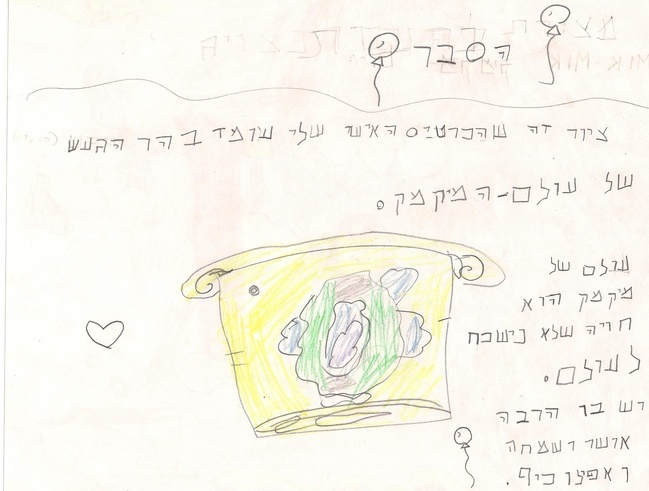 הסבר
ציור זה שהכרטיס האישי שלי עומד בהר הגעש
של עולם-המיקמק.
עולם של
מיקמק הוא
חויה שלא נישכח
לעולם.
יש בו הרבה
אושר ושמחה
כיף.